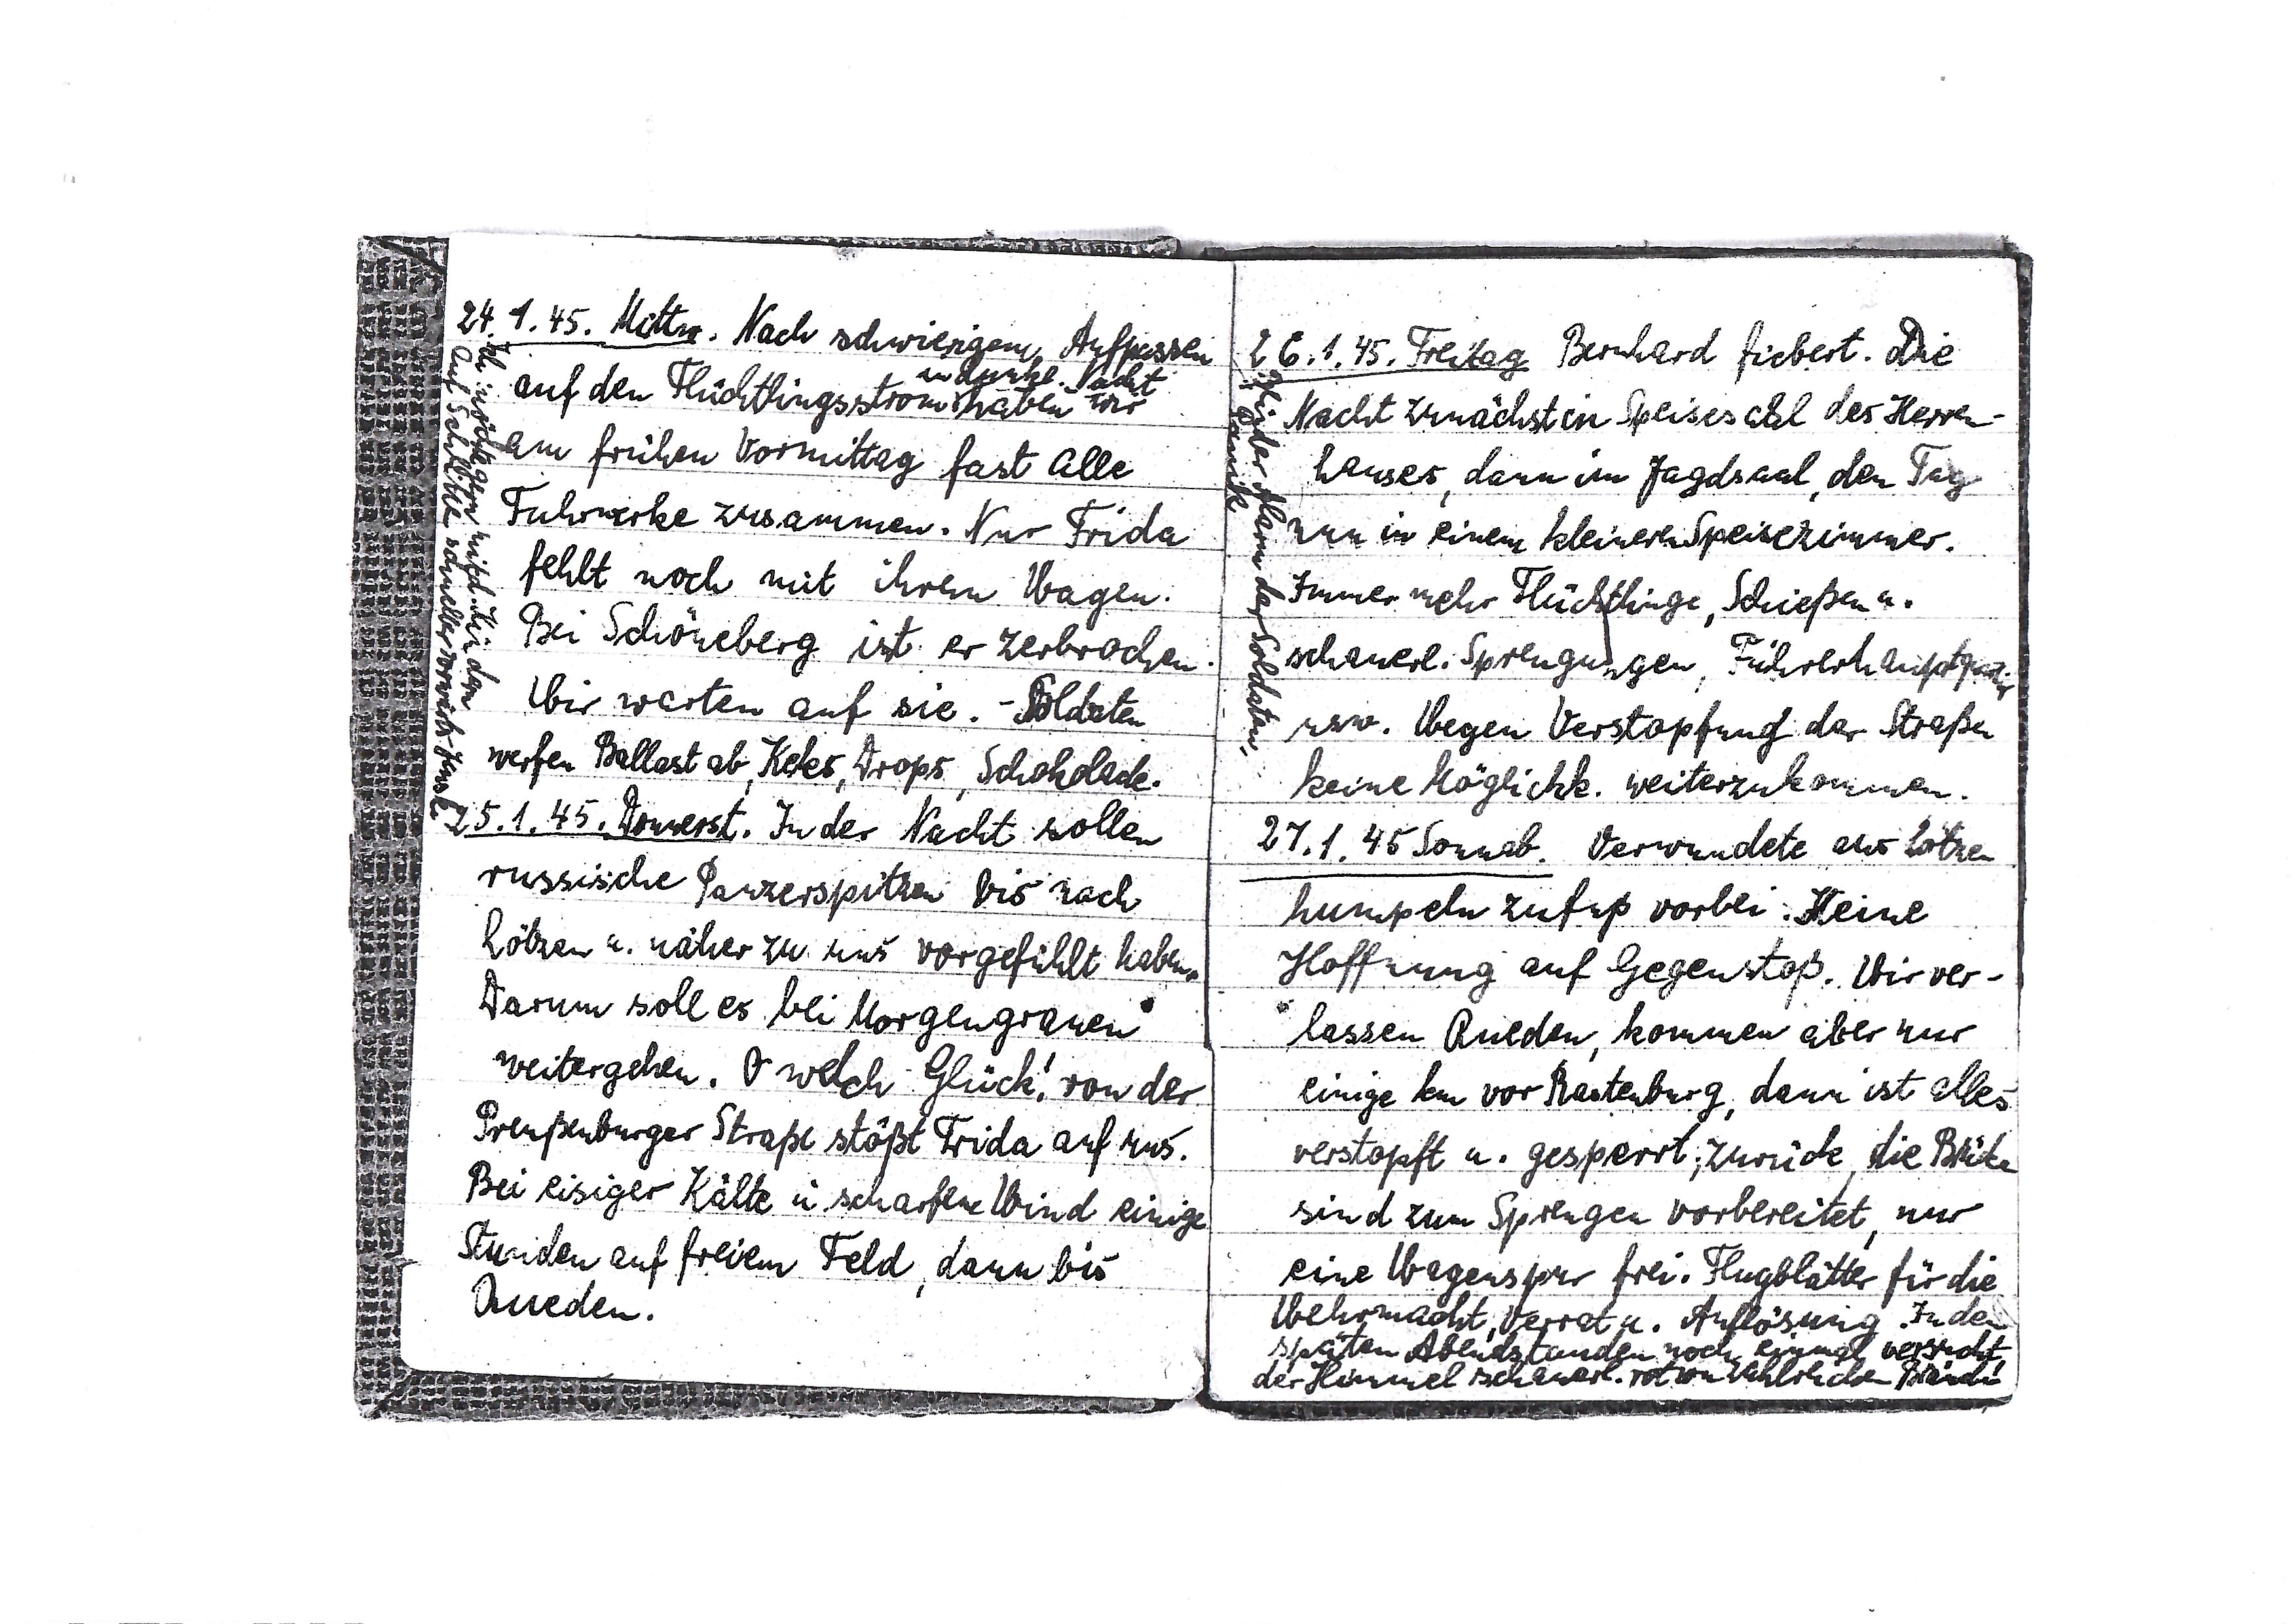 24.1.45. Mittw. Nach schwierigem Aufpassen
auf den Flüchtlingsstrom in dunkl. Nacht haben wir
am frühen Vormittag fast alle
Fuhrwerke zusammen. Nur Frida
fehlt noch mit ihrem Wagen.
Bei Schöneberg ist er zerbrochen.
Wir warten auf sie. - Soldaten
werfen Ballast ab, Keks, Drops, Schokolade.
25.1.45. Donnerst. In der Nacht sollen
russische Panzerspitzen bis nach
Lötzen u. näher zu uns vorgefühlt haben.
Darum soll es bei Morgengrauen
weitergehen. O welch Glück! von der
Preußenburger Straße stößt Frida auf uns.
Bei eisiger Kälte u. scharfem Wind einige
Stunden auf freiem Feld, dann bis
Queden.
auf Schlitten schneller vorwärts
26.1.45. Freitag Bernhard fiebert. Die
Nacht zunächst in Speisesaal des Herren-
hauses, dann im Jagdsaal, den Tag
nun in einem kleineren Speisezimmer.
Immer mehr Flüchtlinge, Schießen u.
schauerl. Sprengungen, Führerhauptquartier
usw. Wegen Verstopfung der Straßen
keine Möglichk. weiterzukommen.
27.1.45 Sonnab. Verwundete aus Lötzen
humpeln zufuß vorbei. Keine
Hoffnung auf Gegenstoß. Wir ver-
lassen Queden, kommen aber nur
einige km vor Rastenburg, dann ist alles
verstopft u. gesperrt; zurück, die Brücken
sind zum Sprengen vorbereitet, nur
eine Wagenspur frei. Flugblätter für die
Wehrmacht, Verrat u. Auflösung. In den
späten Abendstunden noch einmal versucht,
der Himmel schauerl. rot von zahlreichen Bränden
der Soldaten,
Panik